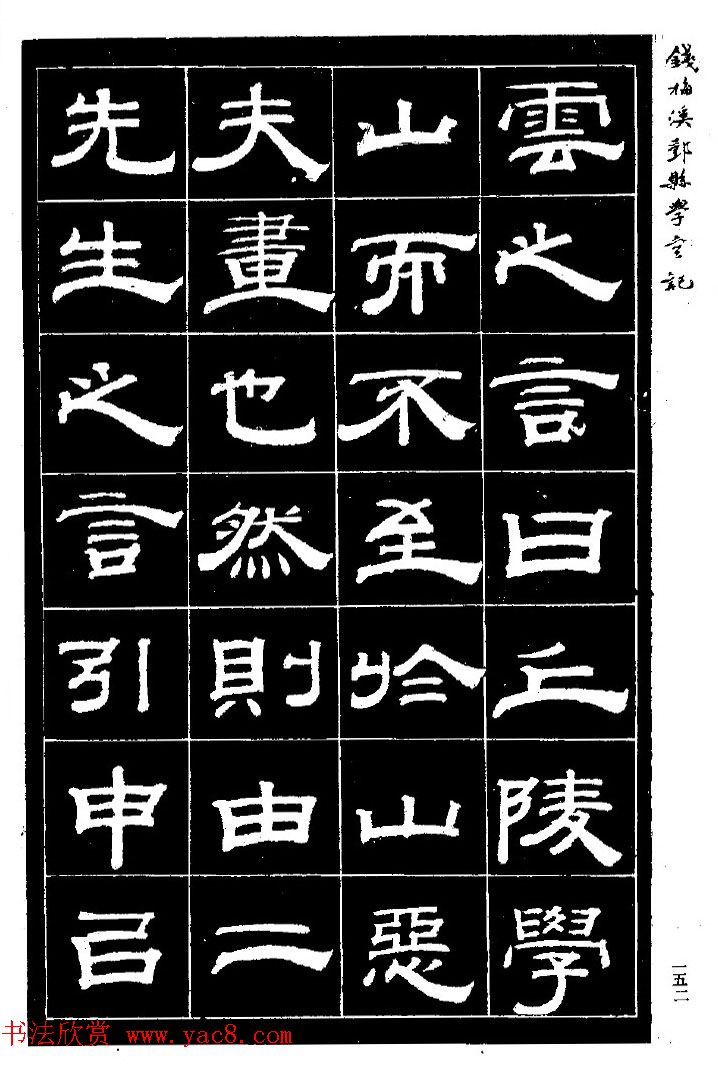 錢梅溪鄞縣學宮記
雲之言曰丘陵學
山而不至於山惡
夫畫也然則由二
先生之言引申㠯
一五二
书法欣赏 www.yac8.com